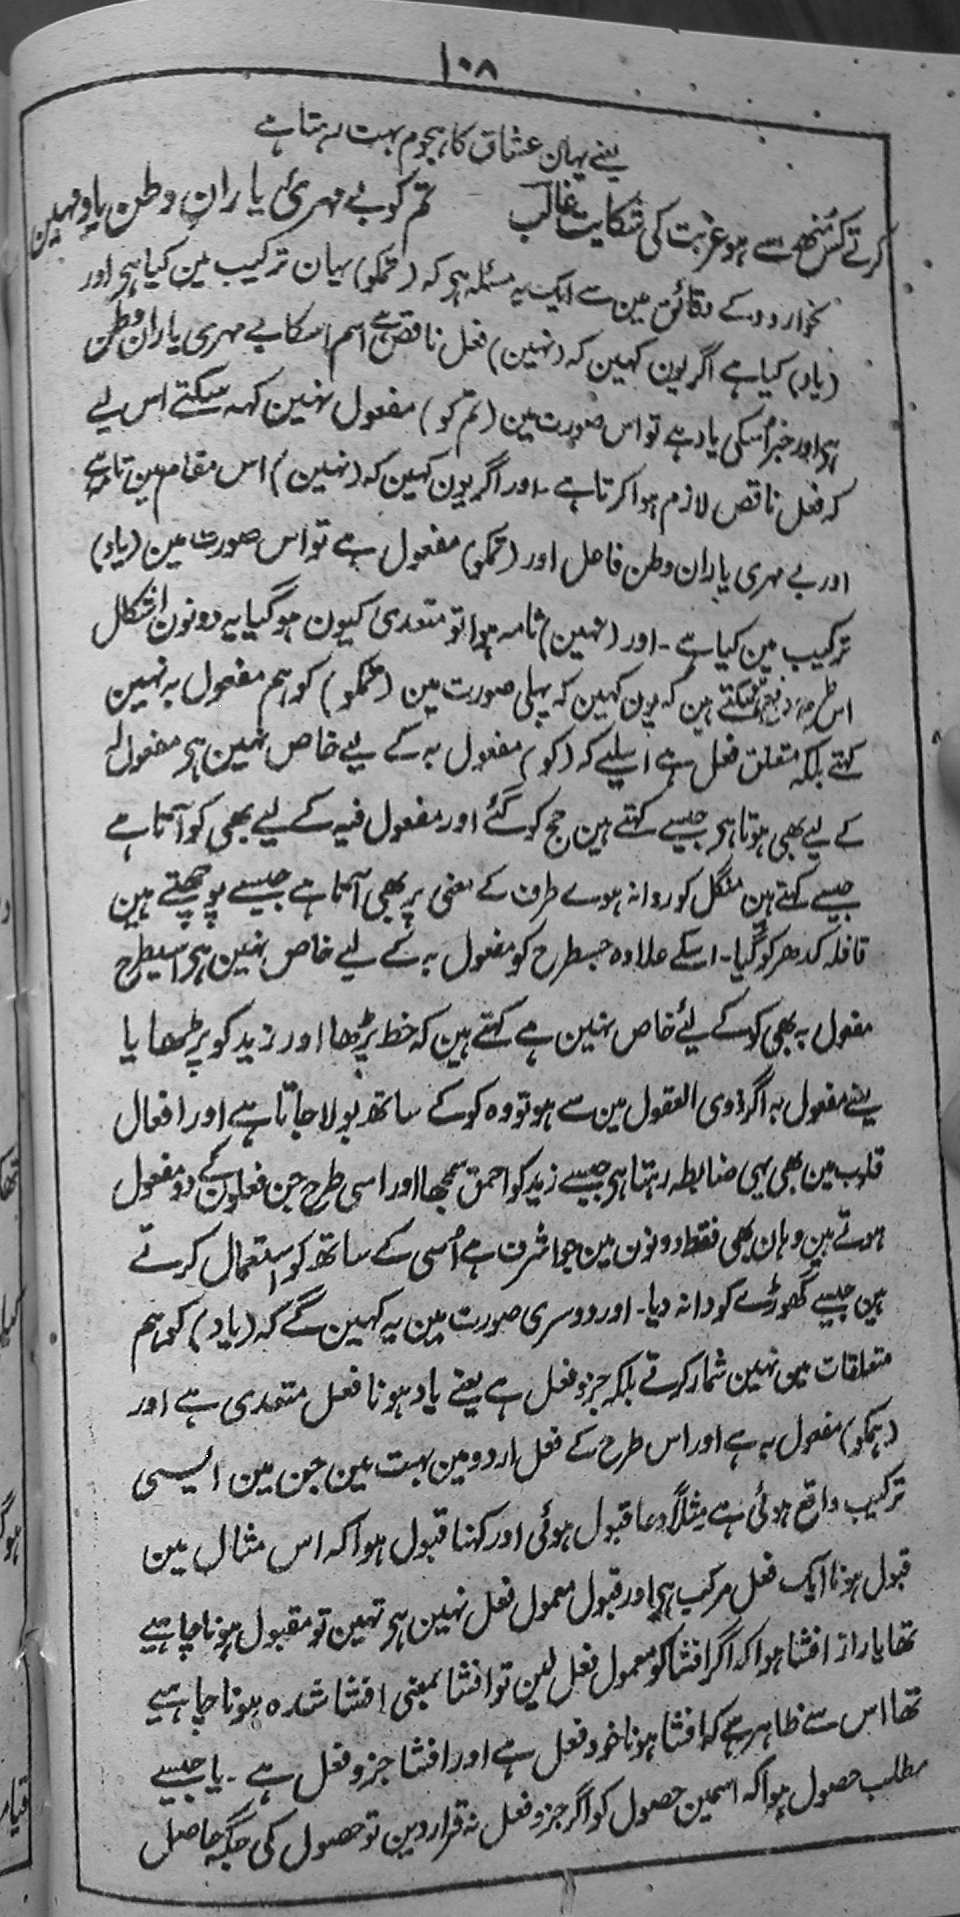 ۱۰۸
یعنے یہان عشاق کا ہجوم بہت رہتا ہے
کرتے کس منھ سے ہو غربت کی شکایت غالب تم کو بے مہریٔ یاران وطن یاد نہین
نحو اردو کے دقائق مین سے ایک یہ مسئلہ ہی کہ (تمکو) یہان ترکیب مین کیا ہی اور
(یاد) کیا ہے اگر یون کہین کہ (نہین) فعل ناقص ہے اسم اسکا بے مہری یاران وطن
ہی اور خبر اُسکی یاد ہے تو اس صورت مین (تم کو) مفعول نہین کہہ سکتے اس لیے
کہ فعل ناقص لازم ہوا کرتا ہے ۔ اور اگر یون کہین کہ (نہین) اس مقام مین تامہ ہے
اور بے مہری یاران وطن فاعل اور (تمکو) مفعول ہے تو اس صورت مین (یاد)
ترکیب مین کیا ہے ۔ اور (نہین) تامہ ہوا تو متعدی کیون ہو گیا یہ دونون اشکال
اس طرح دفع ہو سکتے ہین کہ یون کہین کہ پہلی صورت مین (تمکو) کو ہم مفعول بہ نہین
کہتے بلکہ متعلق فعل ہے اسلیے کہ (کو) مفعول بہ کے لیے خاص نہین ہی مفعول لہ
کے لیے بھی ہوتا ہی جیسے کہتے ہین حج کو گئے اور مفعول فیہ کے لیے بھی کو آتا ہے
جیسے کہتے ہین منگل کو روانہ ہوے طرف کے معنی پر بھی آتا ہے جیسے پوچھتے ہین
قافلہ کدھر کو گیا ۔ اسکے علاوہ جسطرح کو مفعول بہ کے لیے خاص نہین ہی اسیطرح
مفعول بہ بھی کو کے لیٔے خاص نہین ہے کہتے ہین کہ خط پڑھا اور زید کو پڑھایا
یعنے مفعول بہ اگر ذوی العقول مین سے ہو تو وہ کو کے ساتھ بولا جاتا ہے اور افعال
قلوب مین بھی یہی ضابطہ رہتا ہی جیسے زید کو احمق سمجھا اور اسی طرح جن فعلون کے دو مفعول
ہوتے ہین وہان بھی فقط دونون مین جو اشرف ہے اُسی کے ساتھ کو استعمال کرتے
ہین جیسے گھوڑے کو دانہ دیا ۔ اور دوسری صورت مین یہ کہین گے کہ (یاد) کو ہم
متعلقات مین نہین شمار کرتے بلکہ جزو فعل ہے یعنے یاد ہونا فعل متعدی ہے اور
(ہمکو) مفعول بہ ہے اور اس طرح کے فعل اردو مین بہت ہین جن مین ایسی
ترکیب واقع ہوئی ہے مثلاً دعا قبول ہوئی اور کہنا قبول ہوا کہ اس مثال مین
قبول ہونا ایک فعل مرکب ہی اور قبول معمول فعل نہین ہی نہین تو مقبول ہونا چاہیے
تھا یا راز افشا ہوا کہ اگر افشا کو معمول فعل لین تو افشا بمعنی افشا شدہ ہونا چاہیے
تھا اس سے ظاہر ہے کہ افشا ہونا خود فعل ہے اور افشا جزو فعل ہے ۔ یا جیسے
مطلب حصول ہوا کہ اسمین حصول کو اگر جزو فعل نہ قرار دین تو حصول کی جگہ حاصل